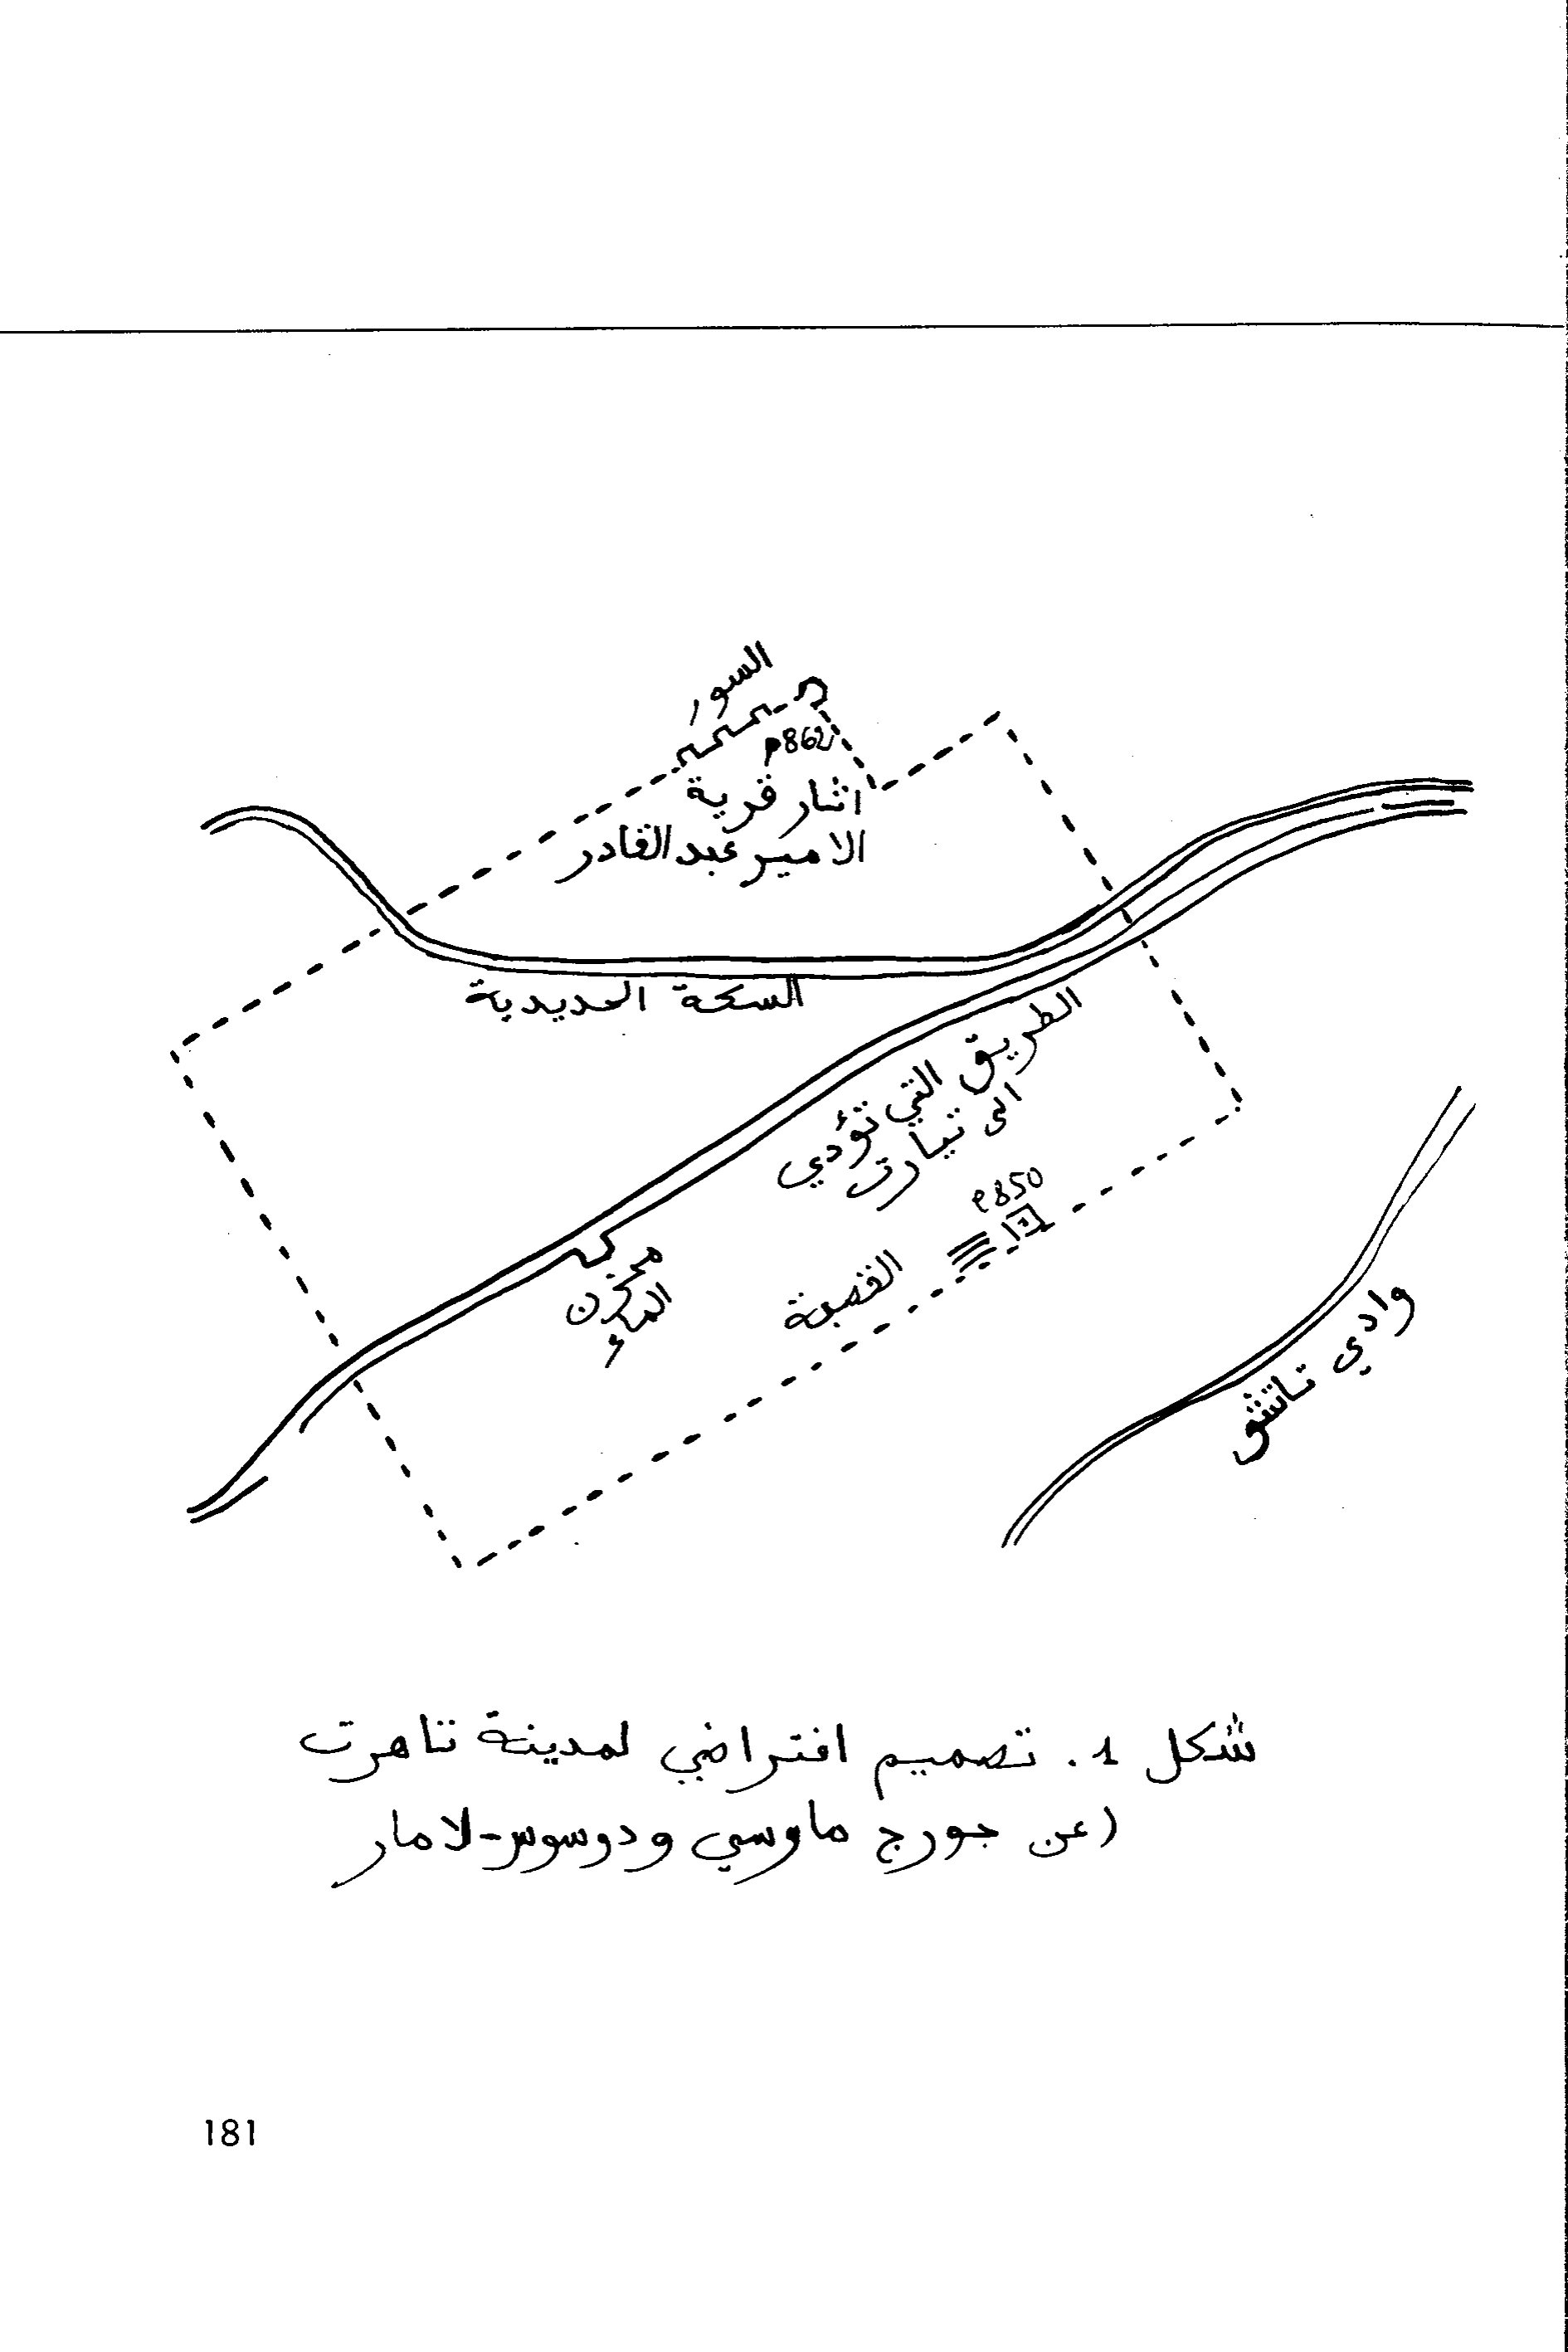 السور
862م
اثار قرية
الامير عبد القادر
السكة الحديدية
الطريق التي تؤدي
الى تيارت
850م
القصبة
مخزن
الماء
وادي تاتش
شكل 1. تصميم افتراضي لمدينة تاهرت
(عن جورج ماوسي ودوسوس-لامار
181